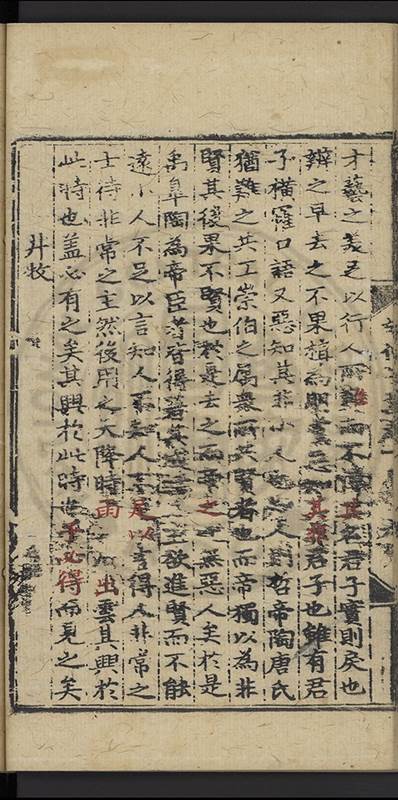 才藝之美足以行人所難而不其名君子實則戾也
辯之早去之不果雖為君子也雖有君
子橫羅口語又惡知其非小人人則哲帝陶唐氏
猶難之共工崇伯之屬衆所共賢者也而帝獨以為非
賢其後果不賢也於是去之而帝之無惡人矣於是
禹皐陶為帝臣得若其主欲進賢而不能
遠小人不足以言知人不知人不足以言得人非常之
士待非常之主然後用之天降時雨出雲其興於
此時也盖必有之矣其興於此時予必得而見之矣
井牧